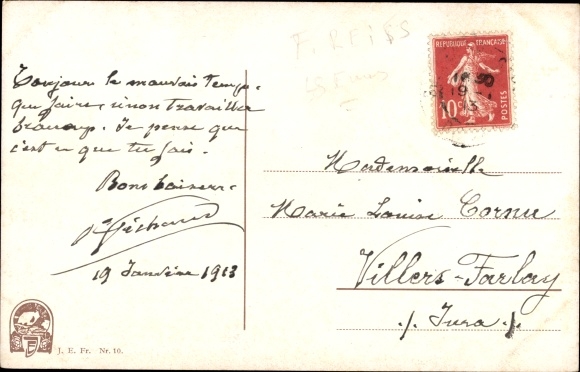 F. REISS
REPUBLIQUE FRANÇAISE
10c
POSTES
Toujours le mauvais temps.
que faire, sinon travailler
beaucoup. Je pense que
c'est ce que tu fais.
Bons baisers.
19 Janvier 1913
Mademoiselle
Marie Louise Cornu
Villers-Farlay
./. Jura /.
J. E. Fr. Nr. 10.